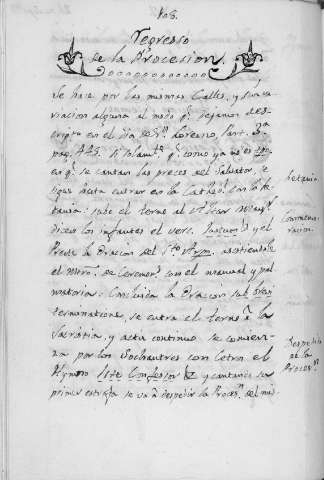 Regreso
de la Procesion
Se hace por las mismas Calles, y sin va
riacion alguna al modo q.e dejamos des
cripto en el dia de S.n Lorenzo, Part. 3.a
pag. 443. Solam.te q.e como ya no es
en q.e se cantan las preces del Salvador, se
sigue hasta entrar en la Cathed.l con la Le
tania: sube el terno al Altar mayor
dicen los infantes el vers. y el
Preste la Oracion del S.to asistiendole
el Mtro. de Ceremon.s con el manual y pal
matoria: Concluida la Oracion sub
terminatione, se entra el terno à la
Sacristia, y acto continuo se comien
za por los Sochantres con Letra el
Hymno Iste Confessor y cantando su
primer estrofa se va à despedir la Proces.n del mi
Letania.
Conmemo
racion.
Despedida
de la
Proces.n